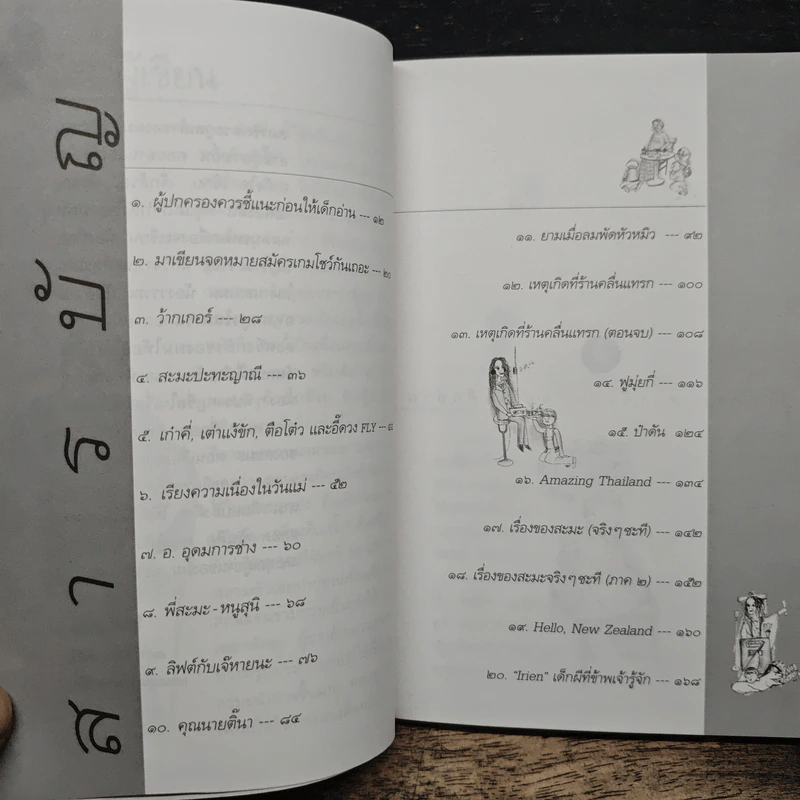 สารบัญ
๑. ผู้ปกครองควรชี้แนะก่อนให้เด็กอ่าน --- ๑๒
๒. มาเขียนจดหมายสมัครเกมโชว์กันเถอะ --- ๒๐
๓. ว้ากเกอร์ --- ๒๘
๔. สะมะปะทะญาณี --- ๓๖
๕. เก๋าคี่, เต่าแง้ขัก, ตือโต๋ว และอี๊ดวง FLY ---
๖. เรียงความเนื่องในวันแม่ --- ๕๒
๗. อ. อุดมการช่าง --- ๖๐
๘. พี่สะมะ - หนูสุนิ --- ๖๘
๙. ลิฟต์กับเจ๊หายนะ --- ๗๖
๑๐. คุณนายติ๊นา --- ๘๔
๑๑. ยามเมื่อลมพัดหัวหมิว --- ๙๒
๑๒. เหตุเกิดที่ร้านคลื่นแทรก --- ๑๐๐
๑๓. เหตุเกิดที่ร้านคลื่นแทรก (ตอนจบ) --- ๑๐๘
๑๔. ฟูมุ่ยกี่ --- ๑๑๖
๑๕. ป๋าดัน ๑๒๔
๑๖. Amazing Thailand --- ๑๓๔
๑๗. เรื่องของสะมะ (จริงๆซะที) --- ๑๔๒
๑๘. เรื่องของสะมะจริงๆซะที (ภาค ๒) --- ๑๕๒
๑๙. Hello, New Zealand --- ๑๖๐
๒๐. "Irien" เด็กผีที่ข้าพเจ้ารู้จัก --- ๑๖๘